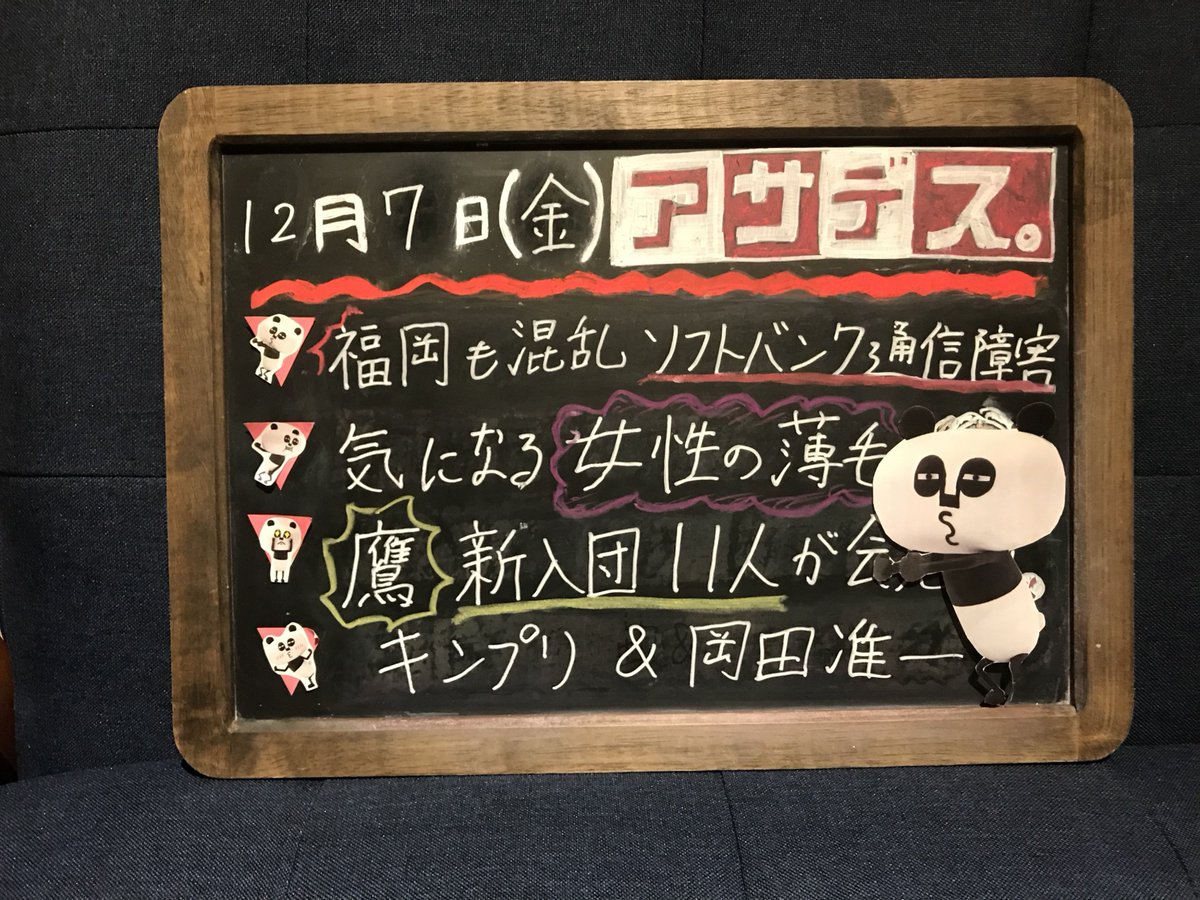 12月7日(金) アサデス。
福岡も混乱 ソフトバンク通信障害
気になる女性の薄毛
鷹 新入団11人が会
キンプリ & 岡田准一